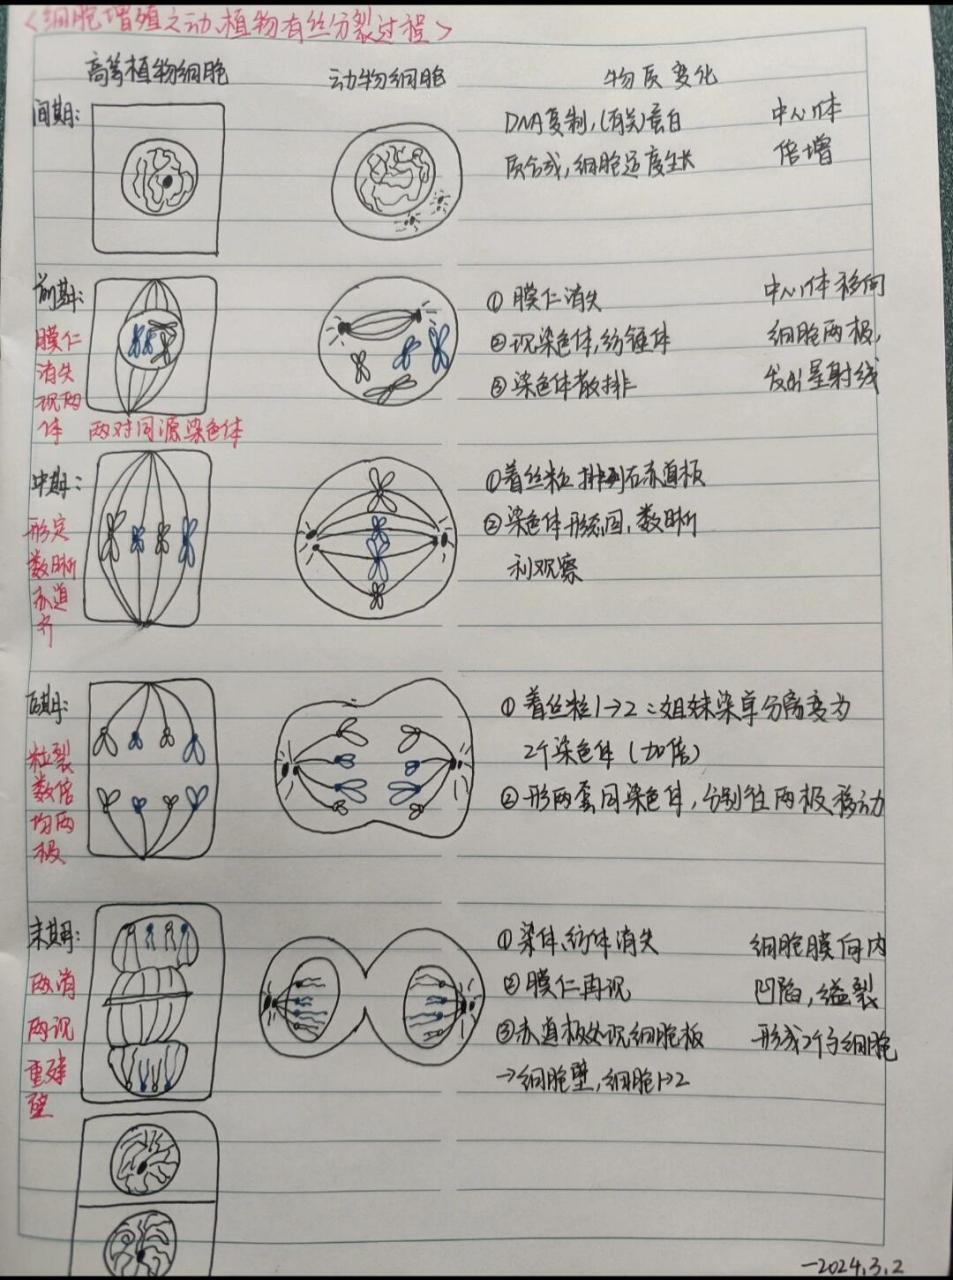 <细胞增殖之动、植物有丝分裂过程>
高等植物细胞 动物细胞 物质变化
间期: DNA复制,(有关)蛋白 中心体
质合成,细胞适度生长 倍增
前期: ① 膜仁消失 中心体移向
膜仁 ②现染色体,纺锤体 细胞两极,
消失 ③染色体散排 发射星射线
现两
体 两对同源染色体
中期: ①着丝粒排列在赤道板
形定 ②染色体形态固,数晰
数晰 利观察
赤道
齐
后期: ① 着丝粒1→2:姐妹染单分离变为
粒裂 2个染色体(加倍)
数倍 ② 形两套同染色体,分别往两极移动
均两
极
末期: ①染体,纺体消失 细胞膜向内
两消 ②膜仁再现 凹陷,缢裂
两现 ③赤道板处现细胞板 形成2个子细胞
重建 →细胞壁,细胞1→2
壁
-2024.3.2